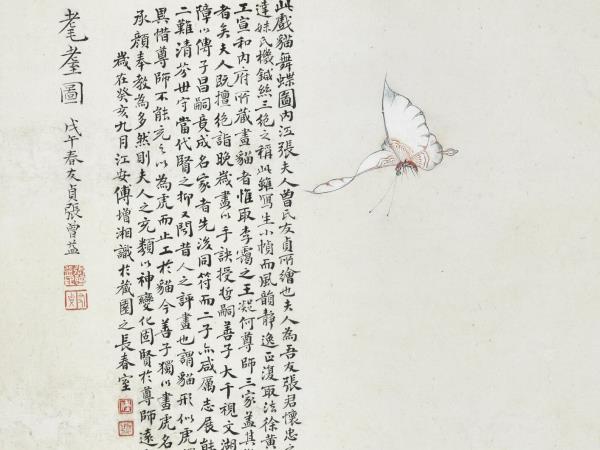 此戲貓舞蝶圖內江張夫人曾氏友貞所繪也夫人為吾友張君懷忠之
達姝氏機鍼絲三絕之稱此雖寫生小幀而風韻靜逸正復取法徐黃
工宣和內府所藏畫貓者惟取李靄之王凝何尊師三家蓋其
者矣夫人既擅絕詣晚歲畫以手訣授哲嗣善子大千視文湖
障以傳子昌嗣竟成名家者先後同符而二子亦咸厲志展能
二難清芬世守當代賢之抑又聞昔人之評畫也謂貓形似虎
異惜尊師不能充之以為虎而止工於貓今善子獨以畫虎名
承顏奉教為多然則夫人之充類以神變化固賢於尊師遠
歲在癸亥九月江安傅增湘識於藏園之長春室
耄耋圖
戊午春友貞張曾益